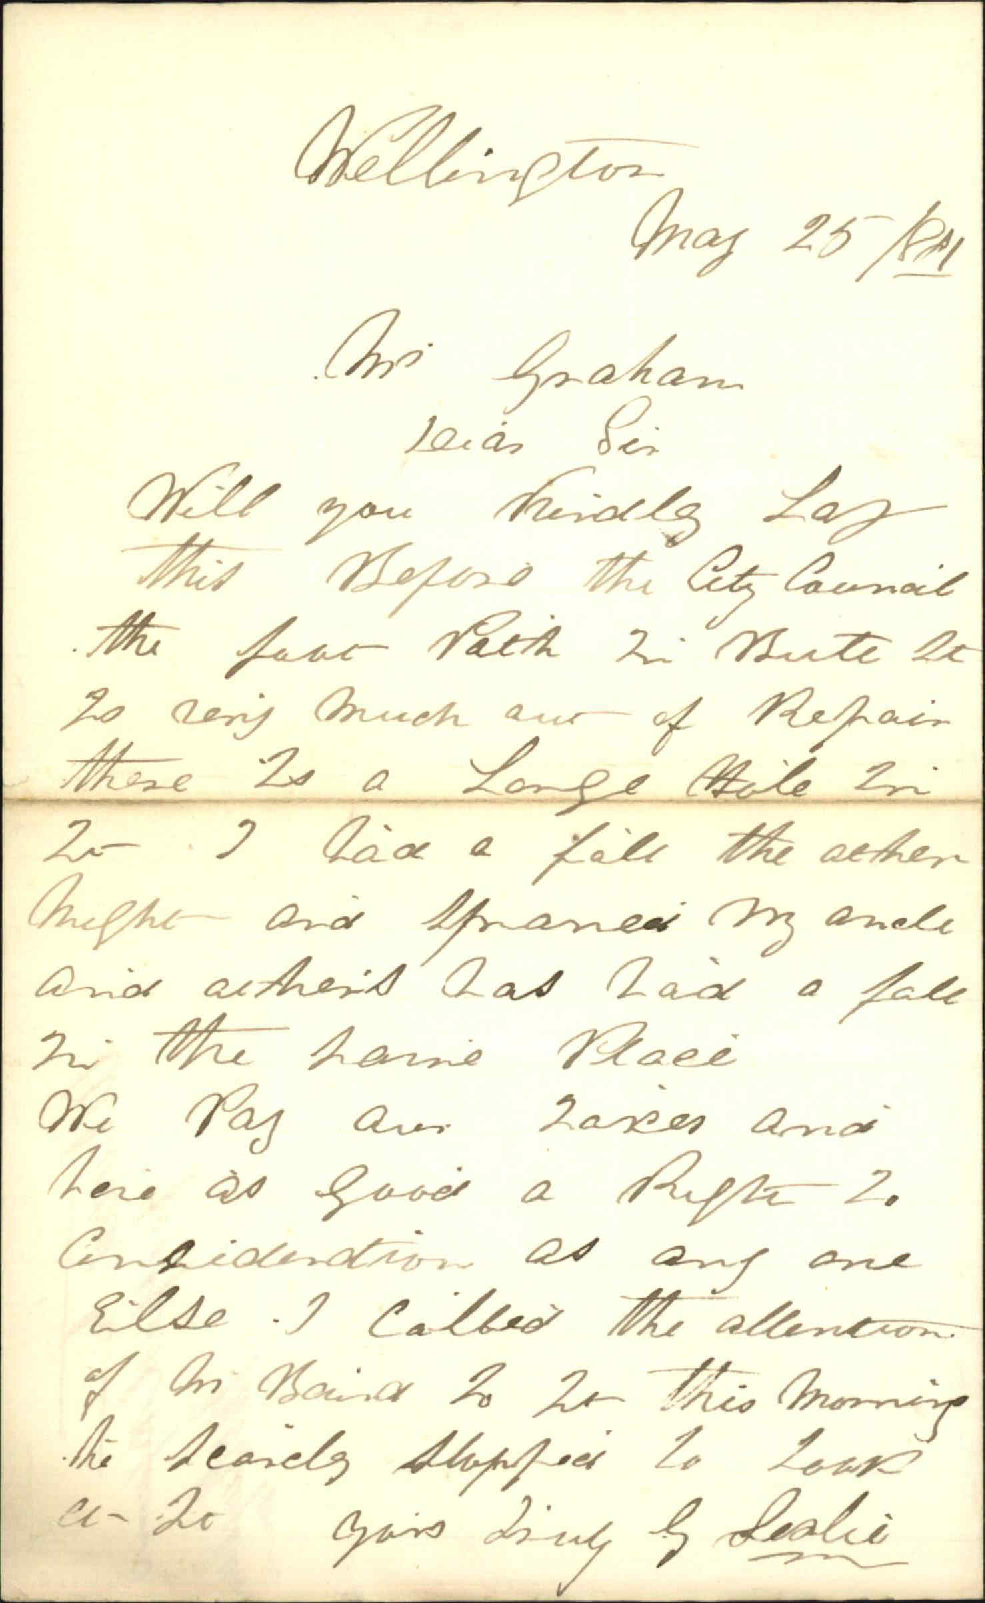 Wellington
May 25 /81
Mr Graham
Dear Sir
Will you Kindly Lay
this Before the City Council
the foot Path in Bute St
Is very Much out of Repair
there Is a Large Hole In
It I had a fall the other
Night and spraned My ancle
and others has had a fall
in the same Place
We Pay our Taxes and
have as Good a Right To
Consideration as any one
Eilse . I Called the attention
of Mr Baird To It this Morning
he scarcly stopped To Look
at It yours Truly G Leslie